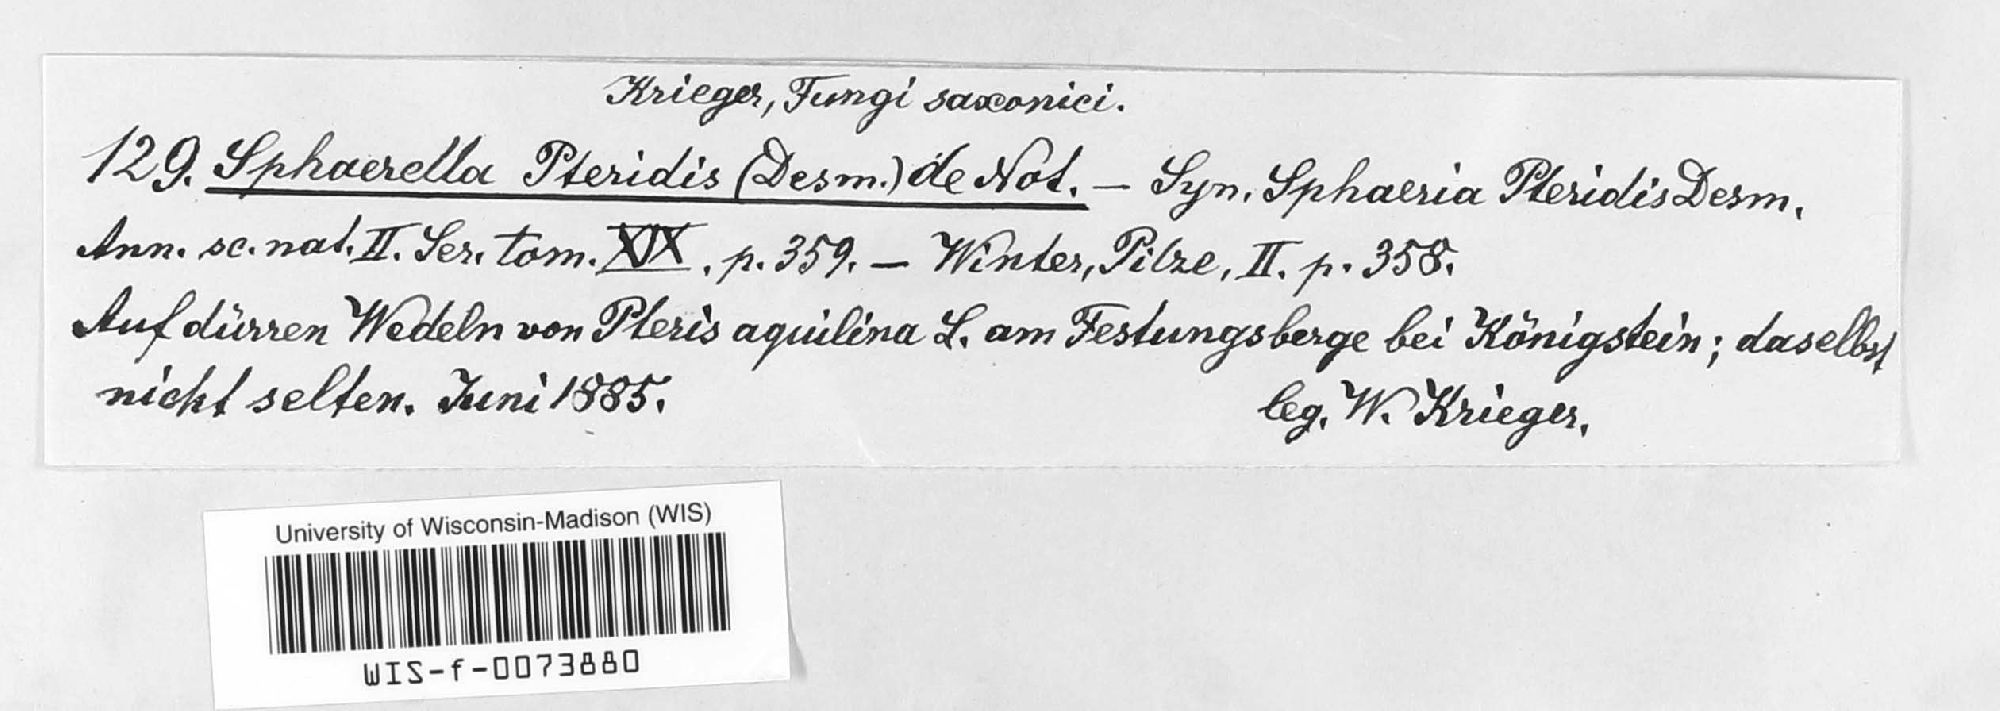 Krieger, Fungi saxonici.
129. Sphaerella Pteridis (Desm.) de Not. — Syn. Sphaeria Pteridis Desm.
Ann. sc. nat. II. Ser. tom. XIX. p. 359. — Winter, Pilze, II. p. 358.
Auf dürren Wedeln von Pteris aquilina L. am Festungsberge bei Königstein; daselbst
nicht selten. Juni 1885. leg. W. Krieger.
University of Wisconsin-Madison (WIS)
WIS-f-0073880